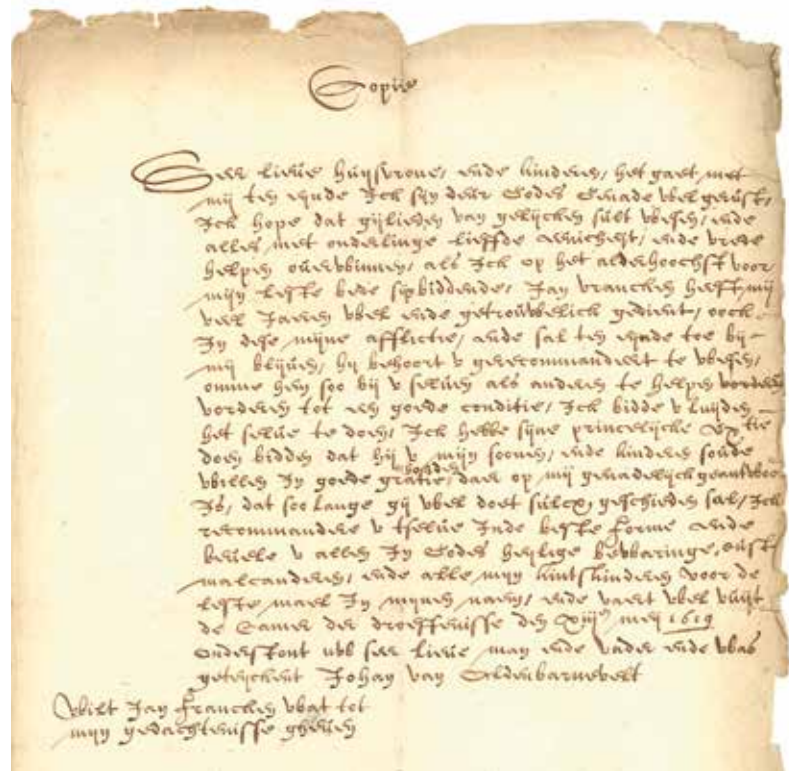 Copie
Seer lieve huysvrouwe, ende kinderen, het gaet met
mij ten eynde Ick syn deur Godes Genade wel gerust,
Ick hope dat gijlieden van gelijcken sult wesen, ende
alles met onderlinge lieffde eenicheyt, ende vrede
helpen overwinnen, als Ick op het alderhoochst voor
mijn leste bede sijt biddende, Jan Francken heeft mij
veel Jaeren wel ende getrouwelich gedient, oock
In dese mijne afflictie, ende sal ten eynde toe bij
mij blijven, hij behoort v gerecommandeert te wesen,
omme hem soo bij v selven als anderen te helpen vorderen
vorderen tot een goede conditie, Ick bidde v luyden
het selve te doen, Ick hebbe sijne princelijcke Extie
doen bidden dat hij v mijn soonen, ende kinderen soude
willen In goede gratie houden, daer op mij genadelijck geantwoo
Is, dat soo lange gij wel doet sulcx geschieden sal, Ick
recommandere v tselve Inde beste forme ende
bevele v allen In Godes heylige bewaringe, cust
malcanderen, ende alle mijn kintskinderen voor de
leste mael In mijnen naem, ende vaert wel vuijt
de Camer der droeffenisse den xiijen meij 1619
onderstont uwe seer lieve man ende vader ende was
geteijckent Johan van Oldenbarnevelt
Wilt Jan Francken wat tot
mijn gedachtenisse gheven